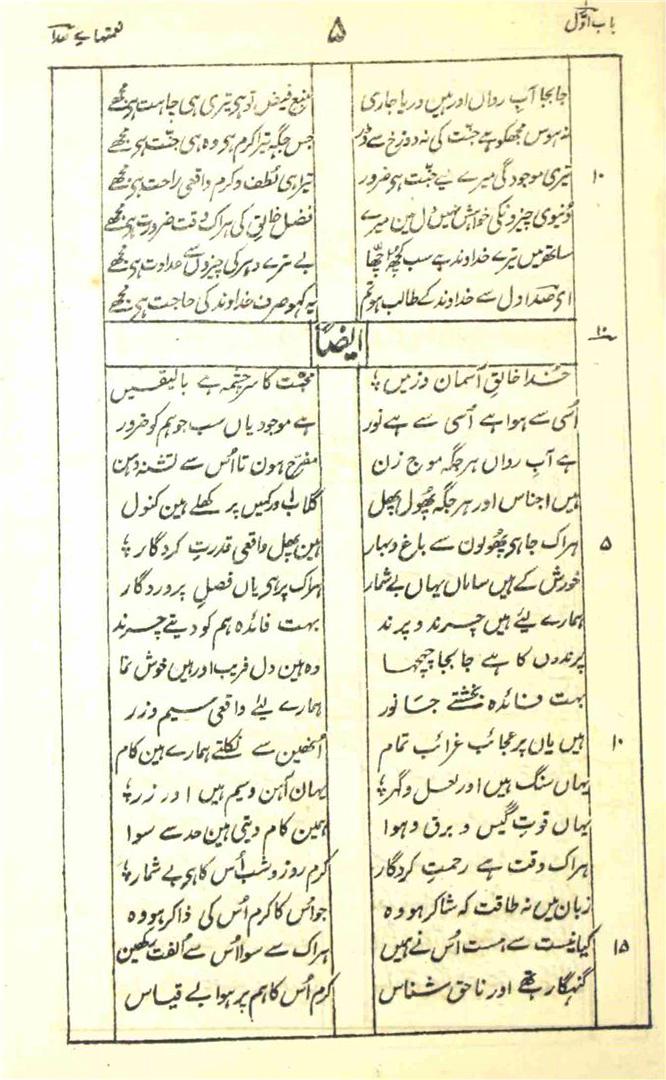 باب اوّل ۵ نعمتہاے خدا
جا بجا آبِ رواں اور ہیں دریا جاری منبع فیض تو ہی تیری ہی چاہت ہی مجھے
نہ ہوس مجھکو ہے جنت کی نہ دوزخ سے ڈر جس جگہ تیرا کرم ہی وہ ہی جنّت ہی مجھے
۱۰ تیری موجودگی میرے لیے جنّت ہی ضرور تیرا ہی لُطف و کرم واقعی راحت ہی مجھے
دُنیوی چیزونکی خواہش نہیں دل مین میرے فضل خالق کی ہر اک وقت ضرورت ہی مجھے
ساتھ میں تیرے خداوند ہے سب کچھ اچھّا بے ترے دہر کی چیزوں سے عداوت ہی مجھے
ای صدا دل سے خداوند کے طالب ہو تم یہ کہو صرف خداوند کی حاجت ہی مجھے
۱۰ ایضاً
خُدا خالقِ آسمان و زمیں محبّت کا سرچشمہ ہے بالیقیں
اُسی سے ہوا ہے اُسی سے ہے نور ہے موجود یاں سب جو ہم کو ضرور
ہے آبِ رواں ہر جگہ موج زن مفرّح ہون تا اُس سے تشنہ دہن
ہیں اجناس اور ہر جگہ پھُول پھل گلابی و رکہیں پر کھلے ہین کنول
۵ ہر اک جا ہی پھُولون سے باغ و بہار ہین پھل واقعی قدرتِ کردگار
خورش کے ہیں ساماں یہاں بے شمار ہر اک پر ہی یاں فضلِ پروردگار
ہمارے لیٔے ہیں چرند و پرند بہت فائدہ ہم کو دیتے چرند
پرندوں کا ہے جا بجا چہچہا وہ ہین دل فریب اور ہیں خوش نما
بہت فائدہ بخشتے جانور ہمارے لیٔے واقعی سیم و زر
۱۰ ہیں یاں پر عجائب غرائب تمام اُنھین سے نکلتے ہمارے ہین کام
یہاں سنگ ہیں اور لعل و گہر یہان آہن و سیم ہیں اور زر
یہاں قوتِ گیس و برق و ہوا ہمین کام دیتی ہین حد سے سوا
ہر اک وقت ہے رحمتِ کردگار کرم روز و شب اُس کا ہی بے شمار
زبان میں نہ طاقت کہ شاکر ہو وہ جو اُس کا کرم اُس کی ذاکر ہو وہ
۱۵ کیا نیست سے ہست اُس نے ہمیں ہر اک سے سوا اُس سے اُلفت رکھین
گنہگار تھے اور ناحق شناس کرم اُس کا ہم پر ہوا بے قیاس